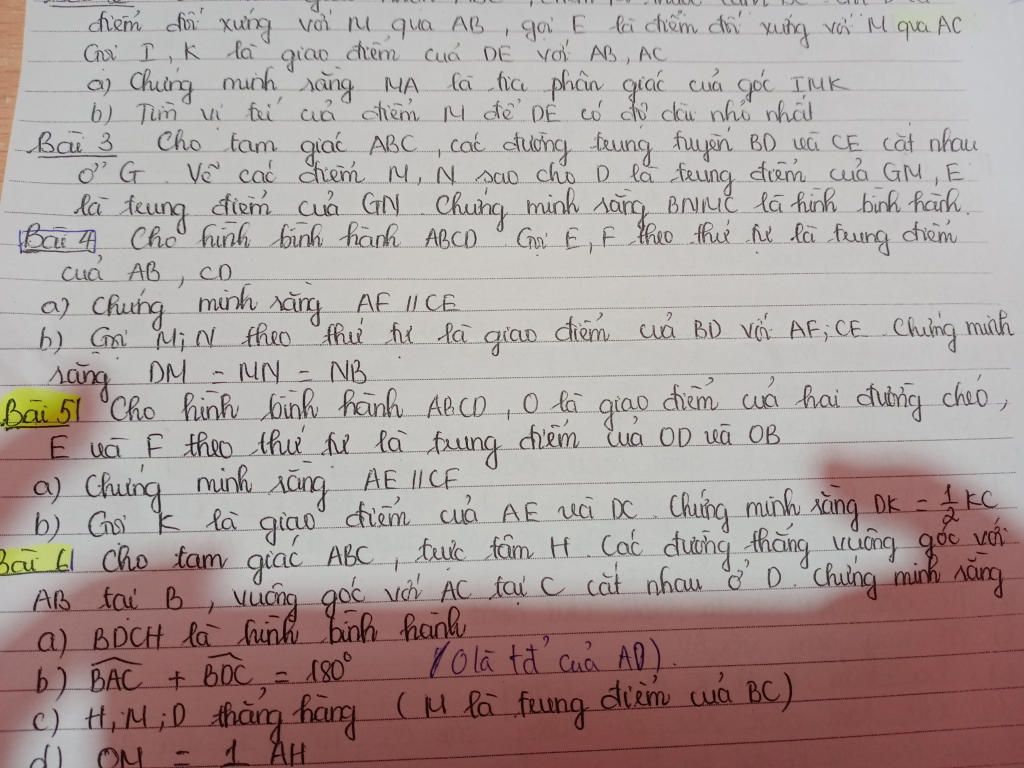 điểm đối xứng với M qua AB, gọi E là điểm đối xứng với M qua AC
Gọi I, K là giao điểm của DE với AB, AC
a) Chứng minh rằng MA là tia phân giác của góc IMK
b) Tìm vị trí của điểm M để DE có độ dài nhỏ nhất
Bài 3 Cho tam giác ABC, các đường trung tuyến BD và CE cắt nhau
ở G. Vẽ các điểm M, N sao cho D là trung điểm của GM, E
là trung điểm của GN. Chứng minh rằng BNMC là hình bình hành.
Bài 4 Cho hình bình hành ABCD Gọi E, F theo thứ tự là trung điểm
của AB, CD
a) Chứng minh rằng AF // CE
b) Gọi M; N theo thứ tự là giao điểm của BD với AF; CE. Chứng minh
rằng DM = MN = NB
Bài 5 Cho hình bình hành ABCD, O là giao điểm của hai đường chéo,
E và F theo thứ tự là trung điểm của OD và OB
a) Chứng minh rằng AE // CF
b) Gọi K là giao điểm của AE và DC. Chứng minh rằng DK = 1/2 KC
Bài 6 Cho tam giác ABC, trực tâm H. Các đường thẳng vuông góc với
AB tại B, vuông góc với AC tại C cắt nhau ở D. Chứng minh rằng
a) BDCH là hình bình hành
b) BAC + BDC = 180° (O là tđ của AD).
c) H, M, D thẳng hàng (M là trung điểm của BC)
d) OM = 1 AH